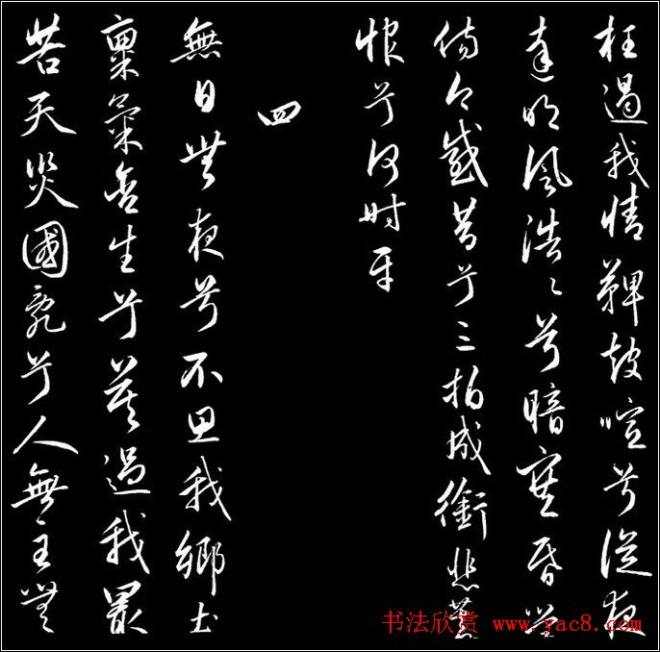 枉遏我情鞞鼓喧兮從夜
達明風浩〻兮暗塞昏營
傷今感昔兮三拍成銜悲蓄
恨兮何時平
四
無日無夜兮不思我鄉土
稟氣含生兮莫過我最
苦天災國亂兮人無主
书法欣赏 www.yac8.com